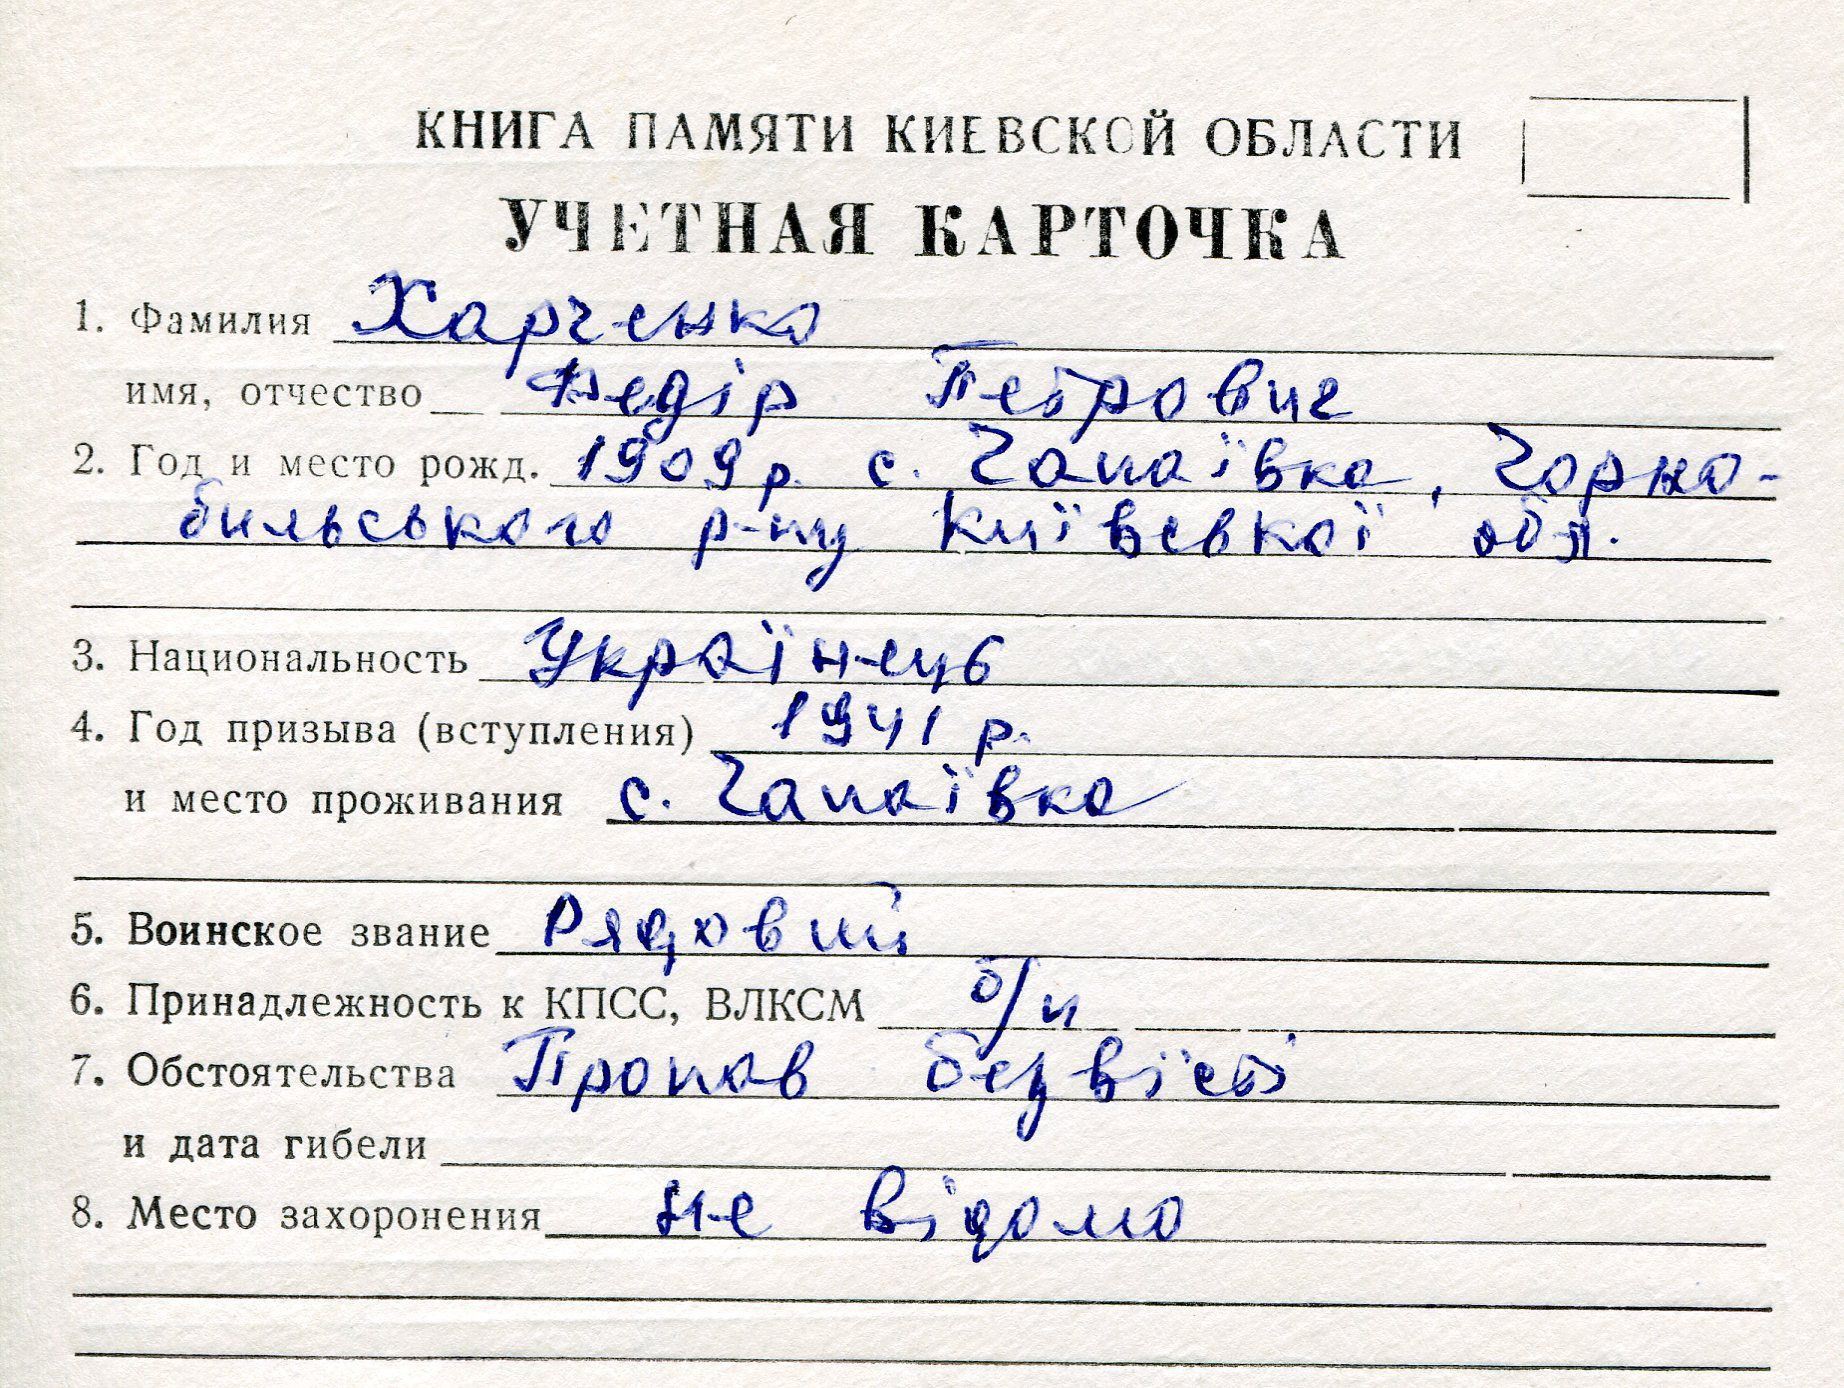 КНИГА ПАМЯТИ КИЕВСКОЙ ОБЛАСТИ
УЧЕТНАЯ КАРТОЧКА
1. Фамилия Харченко
имя, отчество Федір Петрович
2. Год и место рожд. 1909 р. с. Чапаївка, Чорно-
бильського р-ну Київської обл.
3. Национальность Українець
4. Год призыва (вступления) 1941 р.
и место проживания с. Чапаївка
5. Воинское звание Рядовий
6. Принадлежность к КПСС, ВЛКСМ б/п
7. Обстоятельства Пропав безвісті
и дата гибели
8. Место захоронения не відомо